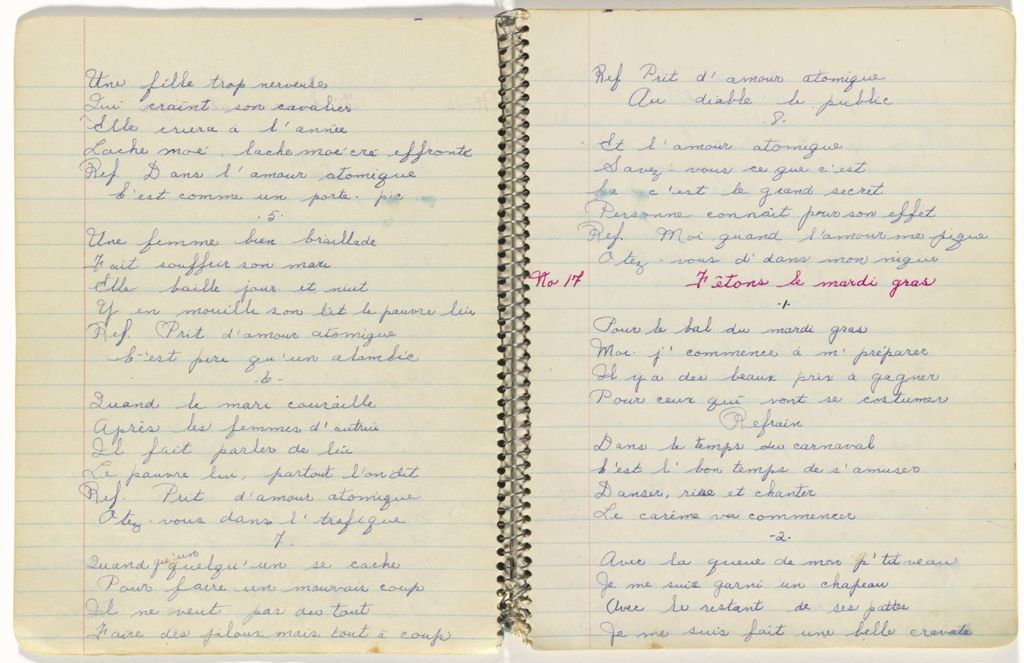 Une fille trop nerveuse
Qui craint son cavalier
Elle criera à l'année
Lache moé, lache moé cré effronté
Ref. Dans l'amour atomique
C'est comme un porte-pic
.5.
Une femme bien braillade
Fait souffrir son mari
Elle baille jour et nuit
Y en mouille son lit le pauvre lui
Ref. Prit d'amour atomique
C'est pire qu'un alambic
-6-
Quand le mari couraille
Après les femmes d'autrui
Il fait parler de lui
Le pauvre lui, partout l'on dit
Ref. Prit d'amour atomique
Otez-vous dans l'trafique
7.
Quand qu'un quelqu'un se cache
Pour faire un mauvais coup
Il ne veut pas du tout
Faire des jaloux mais tout à coup
Ref Prit d'amour atomique
Au diable le public
.8.
Et l'amour atomique
Savez-vous ce que c'est
Ca c'est le grand secret
Personne connait pour son effet
Ref. Moi quand l'amour me pique
Otez-vous d'dans mon nique
No 17 Fêtons le mardi gras
-1-
Pour le bal du mardi gras
Moi j'commence à m'préparer
Il y a des beaux prix à gagner
Pour ceux qui vont se costumer
Refrain
Dans le temps du carnaval
C'est l'bon temps de s'amuser
Danser, rire et chanter
Le carême va commencer
-2-
Avec la queue de mon p'tit veau
Je me suis garni un chapeau
Avec le restant de ses pattes
Je me suis fait une belle cravate